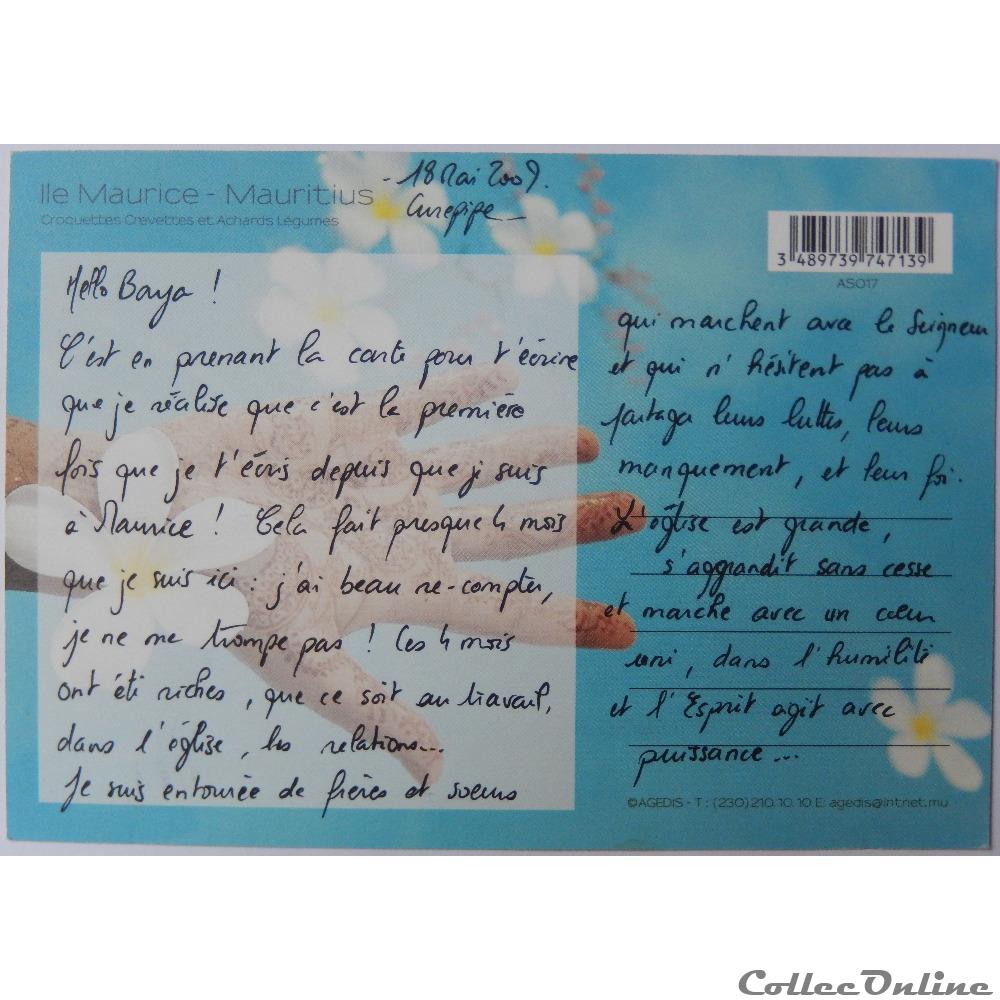 Ile Maurice - Mauritius
Croquettes Crevettes et Achards Légumes
- 18 Mai 2009.
Curepipe
3 489739 747139
ASO17
Hello Baya !
C'est en prenant la carte pour t'écrire
que je réalise que c'est la première
fois que je t'écris depuis que je suis
à Maurice ! Cela fait presque 4 mois
que je suis ici : j'ai beau re-compter,
je ne me trompe pas ! Ces 4 mois
ont été riches, que ce soit au travail,
dans l'église, les relations...
Je suis entourée de frères et soeurs
qui marchent avec le Seigneur
et qui n'hésitent pas à
partager leurs luttes, leurs
manquement, et leur foi.
L'église est grande,
s'aggrandit sans cesse
et marche avec un cœur
uni, dans l'humilité
et l'Esprit agit avec
puissance...
©AGEDIS - T : (230) 210.10.10 E: agedis@intnet.mu
CollecOnline